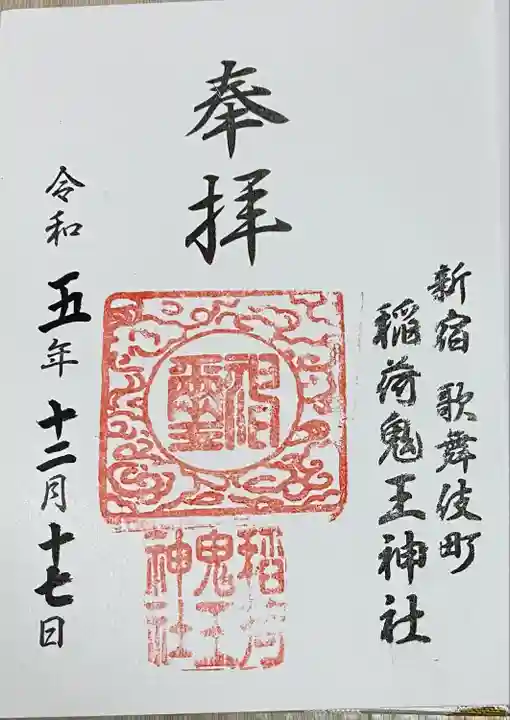 新宿 歌舞伎町
稲荷鬼王神社
奉拝
稲荷
鬼王
神社
令和五年十二月十七日